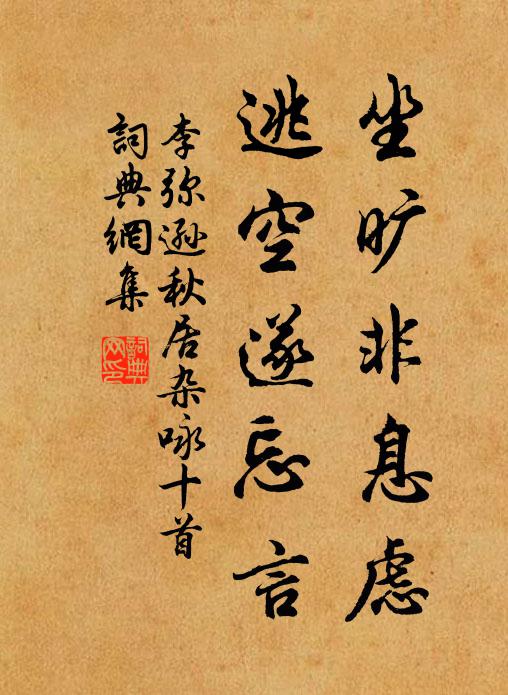 坐旷非息虑
逃空遂忘言
李弥逊秋居杂咏十首
詞典網集
詞典
网印